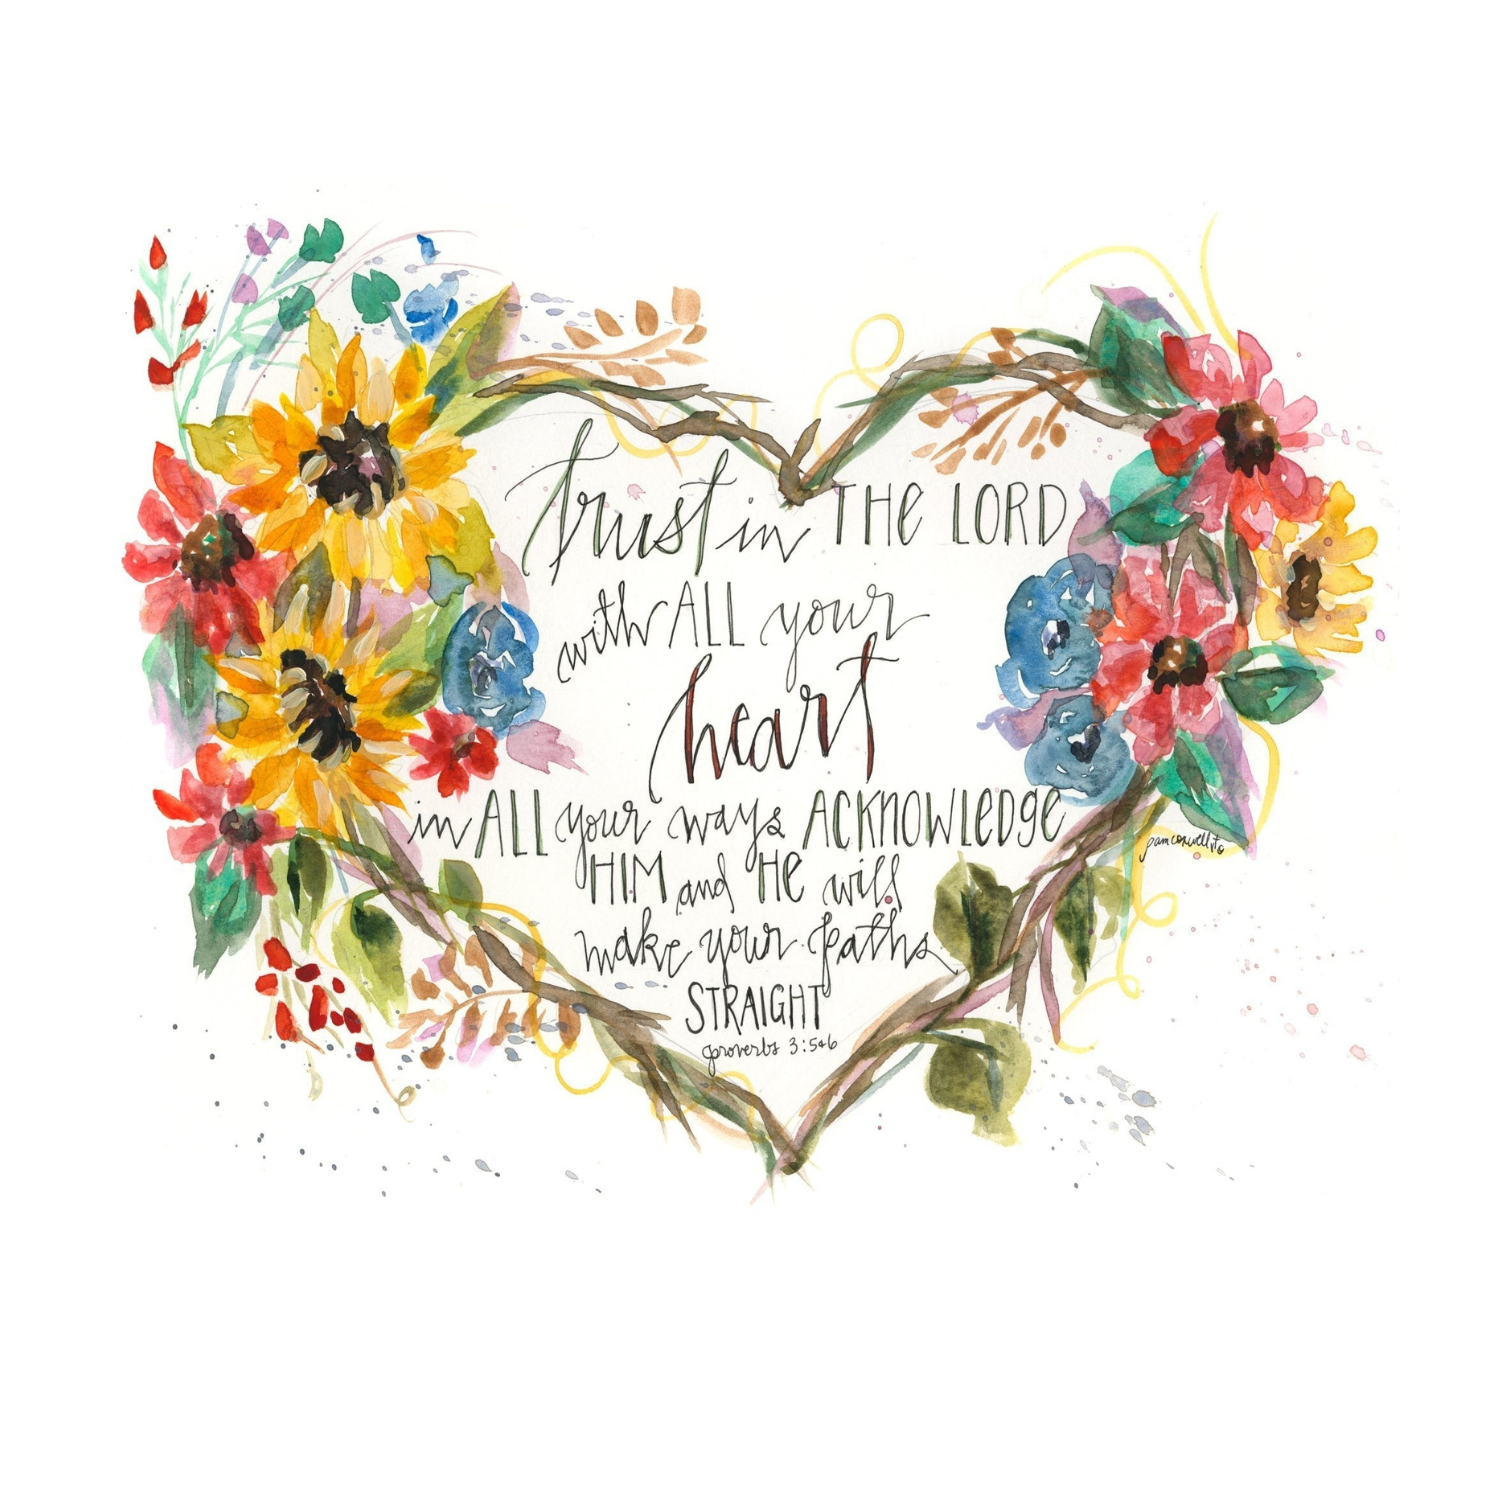 trust in THE LORD
with ALL your
heart
in ALL your ways ACKNOWLEDGE
HIM and HE will
make your paths
STRAIGHT
proverbs 3:5+6